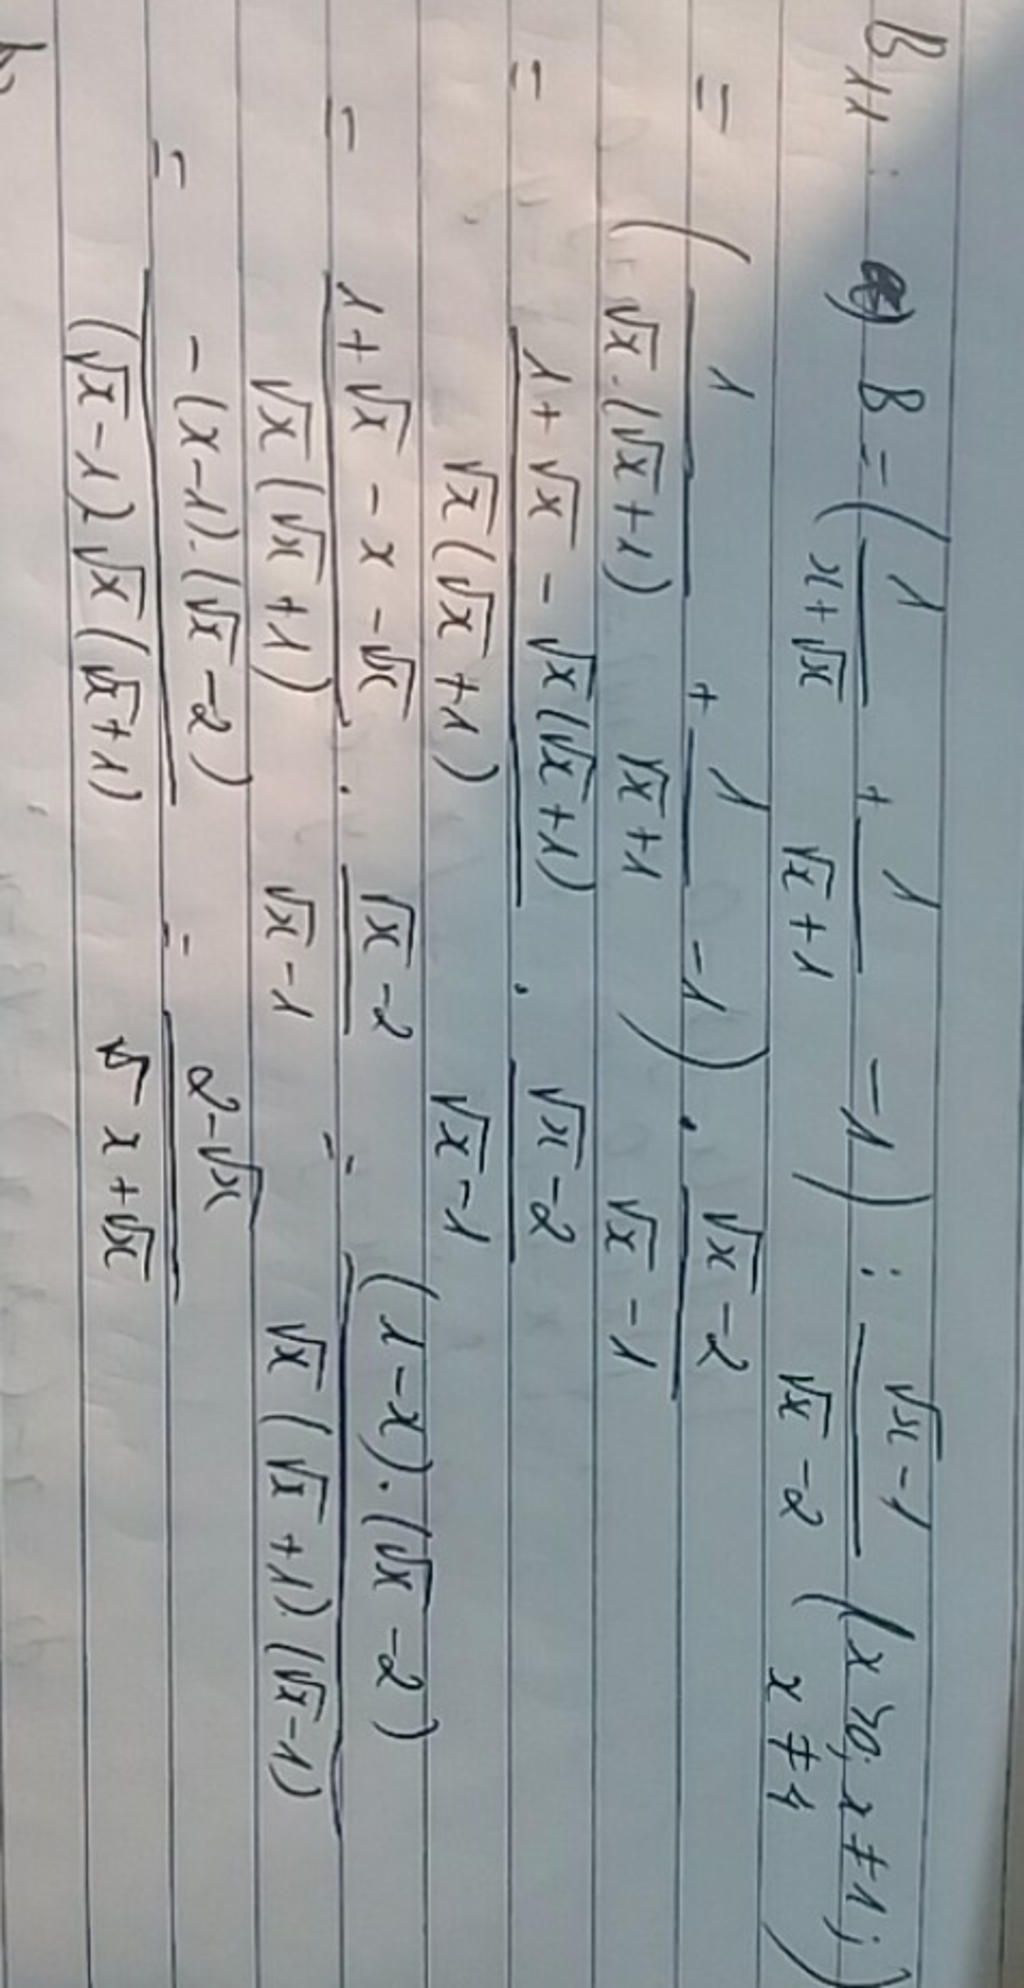 B11: a) B = ( 1/(x+√x) + 1/(√x+1) - 1 ) : (√x-1)/(√x-2) (x>0; x≠1; x≠4)
= ( 1/(√x.(√x+1)) + 1/(√x+1) - 1 ) . (√x-2)/(√x-1)
= (1+√x-√x(√x+1))/(√x(√x+1)) . (√x-2)/(√x-1)
= (1+√x-x-√x)/(√x(√x+1)) . (√x-2)/(√x-1) = ((1-x).(√x-2))/(√x(√x+1).(√x-1))
= (-(x-1).(√x-2))/((√x-1)√x(√x+1)) = (2-√x)/(x+√x)